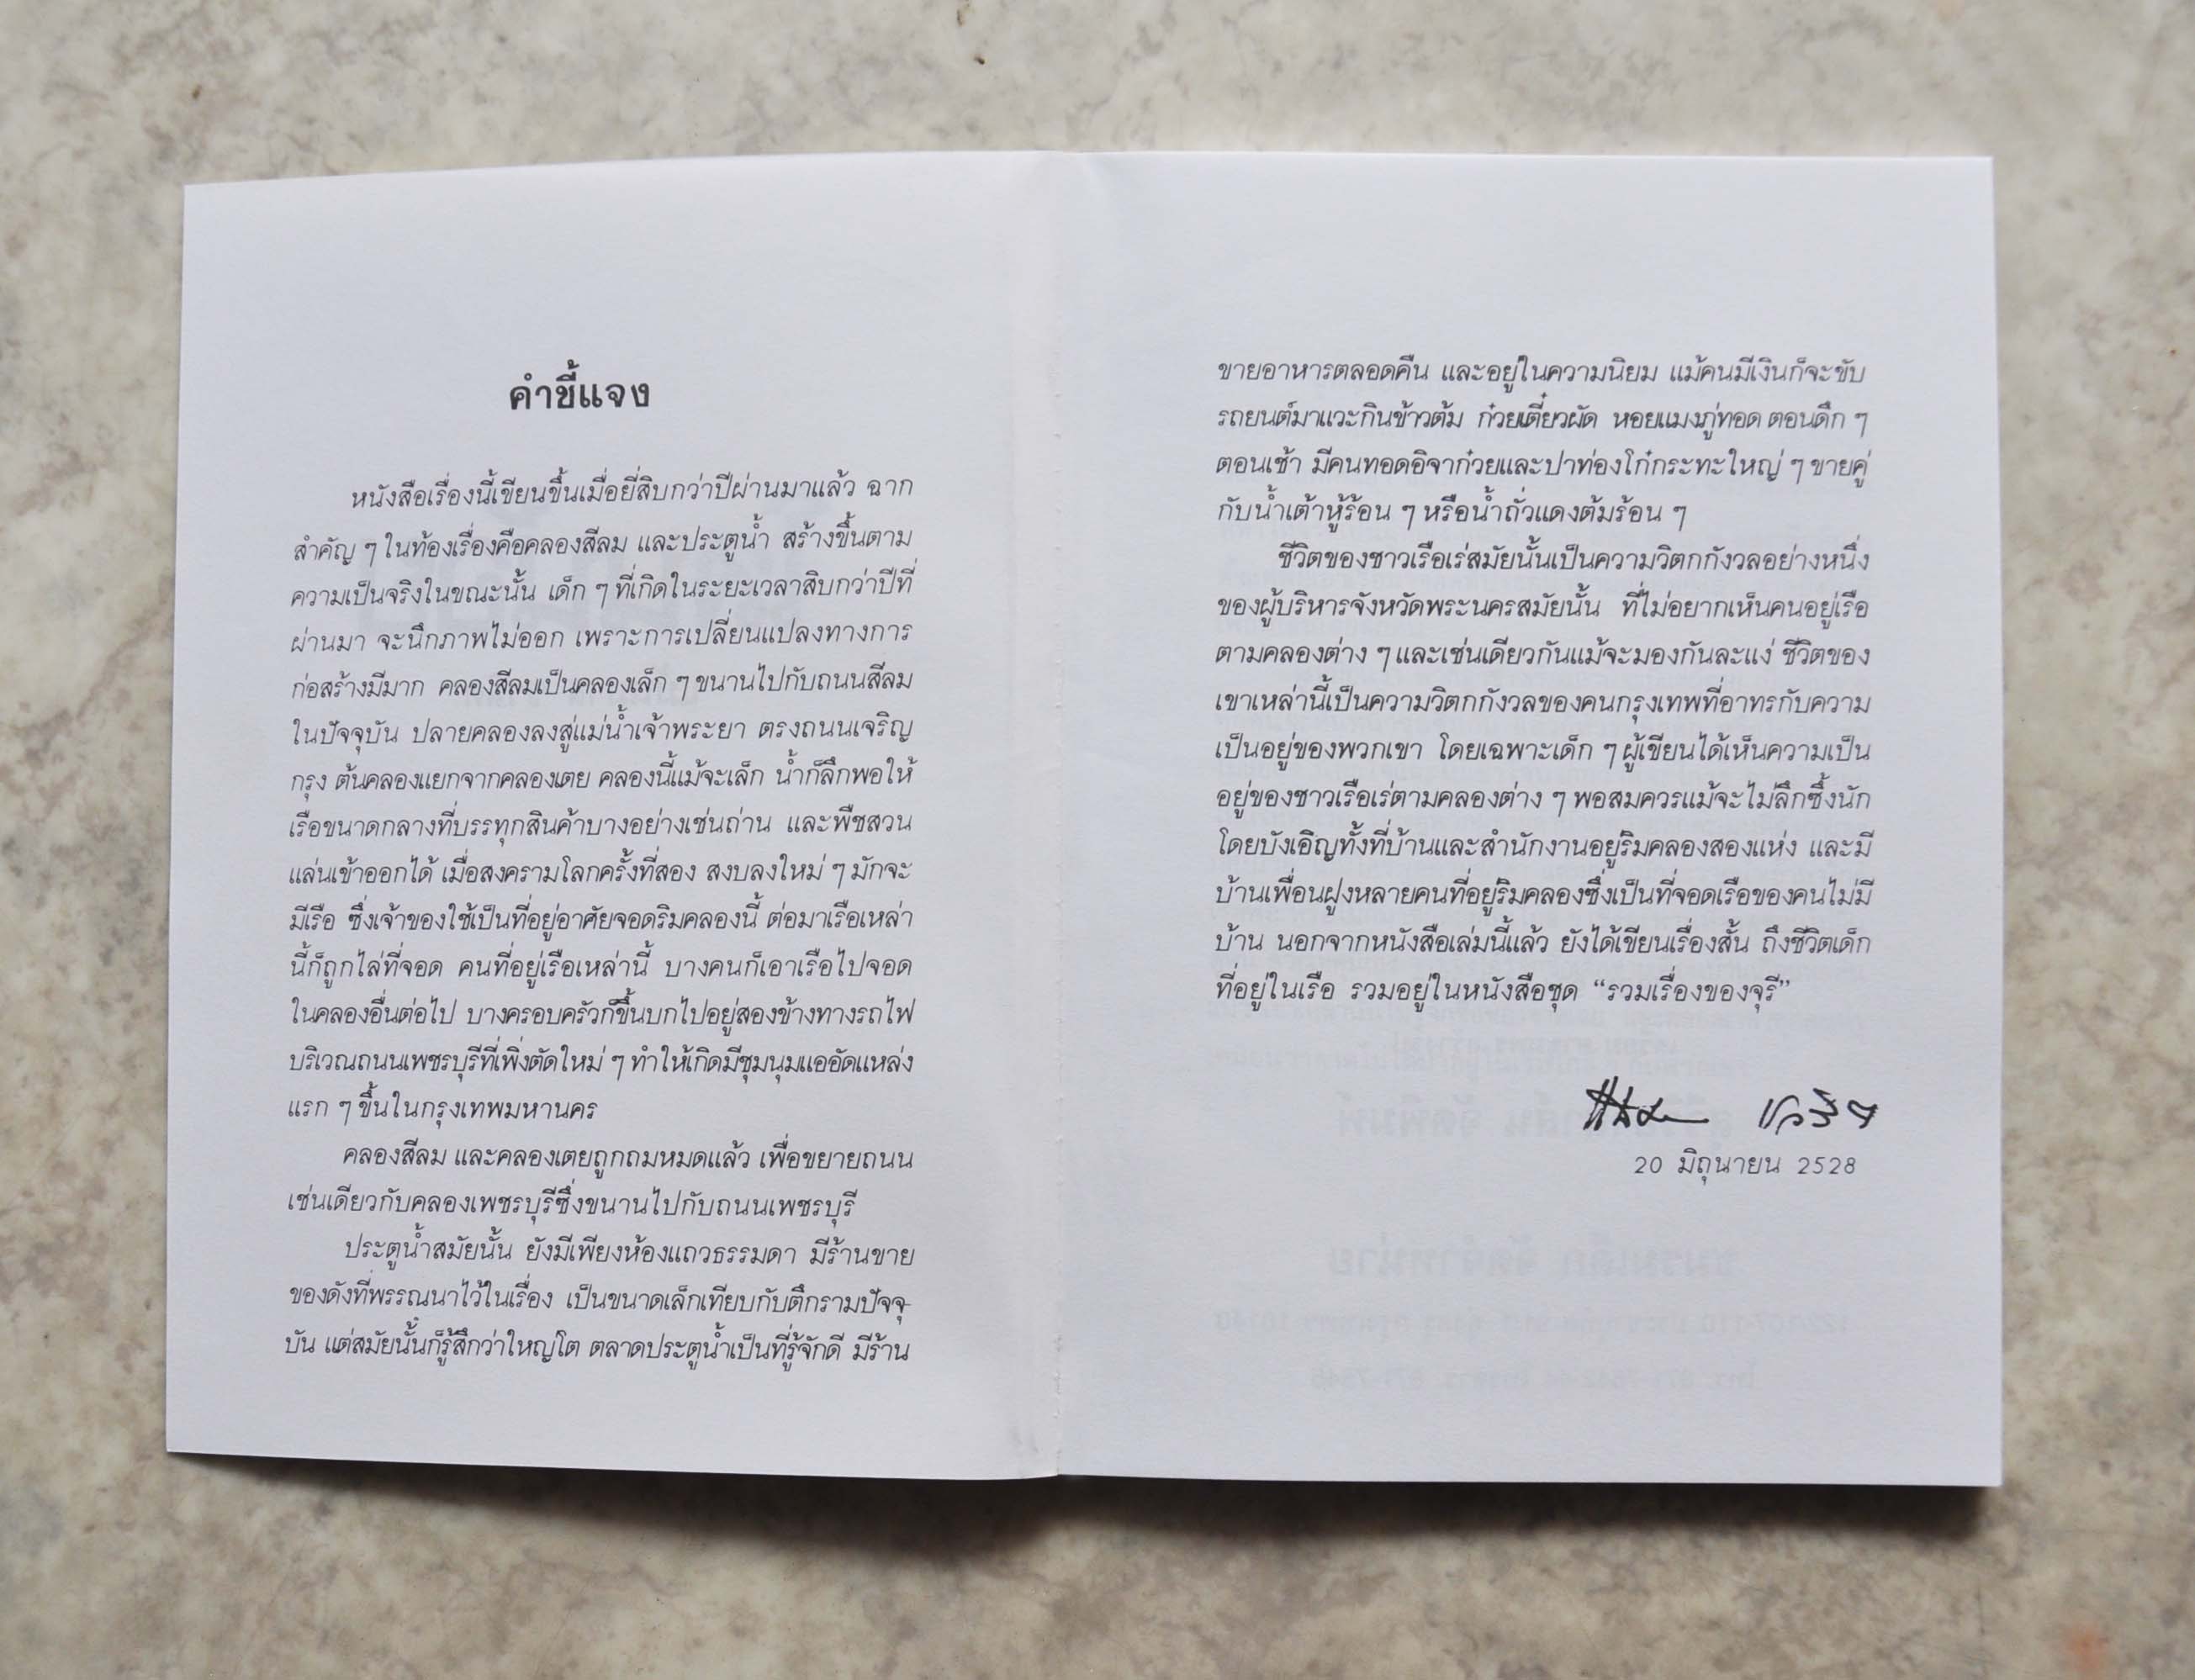 คำชี้แจง
หนังสือเรื่องนี้เขียนขึ้นเมื่อยี่สิบกว่าปีผ่านมาแล้ว ฉาก
สำคัญ ๆ ในท้องเรื่องคือคลองสีลม และประตูน้ำ สร้างขึ้นตาม
ความเป็นจริงในขณะนั้น เด็ก ๆ ที่เกิดในระยะเวลาสิบกว่าปีที่
ผ่านมา จะนึกภาพไม่ออก เพราะการเปลี่ยนแปลงทางการ
ก่อสร้างมีมาก คลองสีลมเป็นคลองเล็ก ๆ ขนานไปกับถนนสีลม
ในปัจจุบัน ปลายคลองลงสู่แม่น้ำเจ้าพระยา ตรงถนนเจริญ
กรุง ต้นคลองแยกจากคลองเตย คลองนี้แม้จะเล็ก น้ำก็ลึกพอให้
เรือขนาดกลางที่บรรทุกสินค้าบางอย่างเช่นถ่าน และพืชสวน
แล่นเข้าออกได้ เมื่อสงครามโลกครั้งที่สอง สงบลงใหม่ ๆ มักจะ
มีเรือ ซึ่งเจ้าของใช้เป็นที่อยู่อาศัยจอดริมคลองนี้ ต่อมาเรือเหล่า
นี้ก็ถูกไล่ที่จอด คนที่อยู่เรือเหล่านี้ บางคนก็เอาเรือไปจอด
ในคลองอื่นต่อไป บางครอบครัวก็ขึ้นบกไปอยู่สองข้างทางรถไฟ
บริเวณถนนเพชรบุรีที่เพิ่งตัดใหม่ ๆ ทำให้เกิดมีชุมนุมแออัดแหล่ง
แรก ๆ ขึ้นในกรุงเทพมหานคร
คลองสีลม และคลองเตยถูกถมหมดแล้ว เพื่อขยายถนน
เช่นเดียวกับคลองเพชรบุรีซึ่งขนานไปกับถนนเพชรบุรี
ประตูน้ำสมัยนั้น ยังมีเพียงห้องแถวธรรมดา มีร้านขาย
ของดังที่พรรณนาไว้ในเรื่อง เป็นขนาดเล็กเทียบกับตึกรามปัจจุ-
บัน แต่สมัยนั้นก็รู้สึกว่าใหญ่โต ตลาดประตูน้ำเป็นที่รู้จักดี มีร้าน
ขายอาหารตลอดคืน และอยู่ในความนิยม แม้คนมีเงินก็จะขับ
รถยนต์มาแวะกินข้าวต้ม ก๋วยเตี๋ยวผัด หอยแมงภู่ทอด ตอนดึก ๆ
ตอนเช้า มีคนทอดอิจาก๋วยและปาท่องโก๋กระทะใหญ่ ๆ ขายคู่
กับน้ำเต้าหู้ร้อน ๆ หรือน้ำถั่วแดงต้มร้อน ๆ
ชีวิตของชาวเรือเร่สมัยนั้นเป็นความวิตกกังวลอย่างหนึ่ง
ของผู้บริหารจังหวัดพระนครสมัยนั้น ที่ไม่อยากเห็นคนอยู่เรือ
ตามคลองต่าง ๆ และเช่นเดียวกันแม้จะมองกันละแง่ ชีวิตของ
เขาเหล่านี้เป็นความวิตกกังวลของคนกรุงเทพที่อาทรกับความ
เป็นอยู่ของพวกเขา โดยเฉพาะเด็ก ๆ ผู้เขียนได้เห็นความเป็น
อยู่ของชาวเรือเร่ตามคลองต่าง ๆ พอสมควรแม้จะไม่ลึกซึ้งนัก
โดยบังเอิญทั้งที่บ้านและสำนักงานอยู่ริมคลองสองแห่ง และมี
บ้านเพื่อนฝูงหลายคนที่อยู่ริมคลองซึ่งเป็นที่จอดเรือของคนไม่มี
บ้าน นอกจากหนังสือเล่มนี้แล้ว ยังได้เขียนเรื่องสั้น ถึงชีวิตเด็ก
ที่อยู่ในเรือ รวมอยู่ในหนังสือชุด “รวมเรื่องของจุรี”
20 มิถุนายน 2528